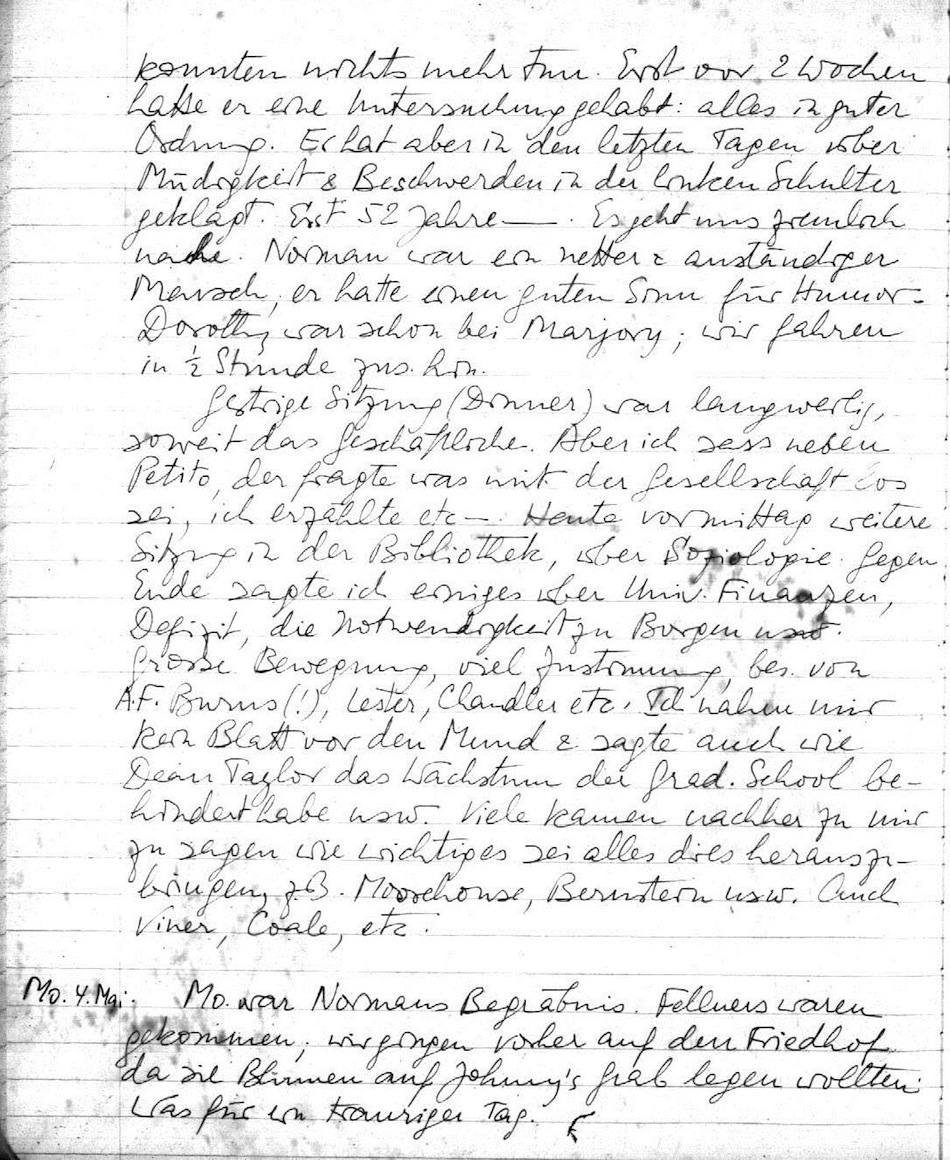 konnten nichts mehr tun. Erst vor 2 Wochen
hatte er eine Untersuchung gehabt: alles in guter
Ordnung. Er hat aber in den letzten Tagen über
Müdigkeit & Beschwerden in der linken Schulter
geklagt. Erst 52 Jahre —. Es geht uns ziemlich
nahe. Norman war ein netter & anständiger
Mensch, er hatte einen guten Sinn für Humor –
Dorothy war schon bei Marjory; wir fahren
in ½ Stunde zus. hin.
Gestrige Sitzung (Dinner) war langweilig,
soweit das Geschäftliche. Aber ich sass neben
Petito, der fragte was mit der Gesellschaft los
sei, ich erzählte etc —. Heute vormittag weitere
Sitzung in der Bibliothek, über Soziologie. Gegen
Ende sagte ich einiges über Univ. Finanzen,
Defizit, die Notwendigkeit zu Borgen usw.
Grosse Bewegung, viel Zustimmung, bes. von
A.F. Burns (!), Lester, Chandler etc. Ich nahm mir
kein Blatt vor den Mund & sagte auch wie
Dean Taylor das Wachstum der Grad. School be-
hindert habe usw. Viele kamen nachher zu mir
zu sagen wie wichtig es sei alles dies herauszu-
bringen, z.B. Moorehouse, Bernstein usw. Auch
Viner, Coale, etc.
Mo. 4. Mai. Mo. war Normans Begräbnis. Fellners waren
gekommen; wir gingen vorher auf den Friedhof
da sie Blumen auf Johnny's Grab legen wollten.
Was für ein trauriger Tag.